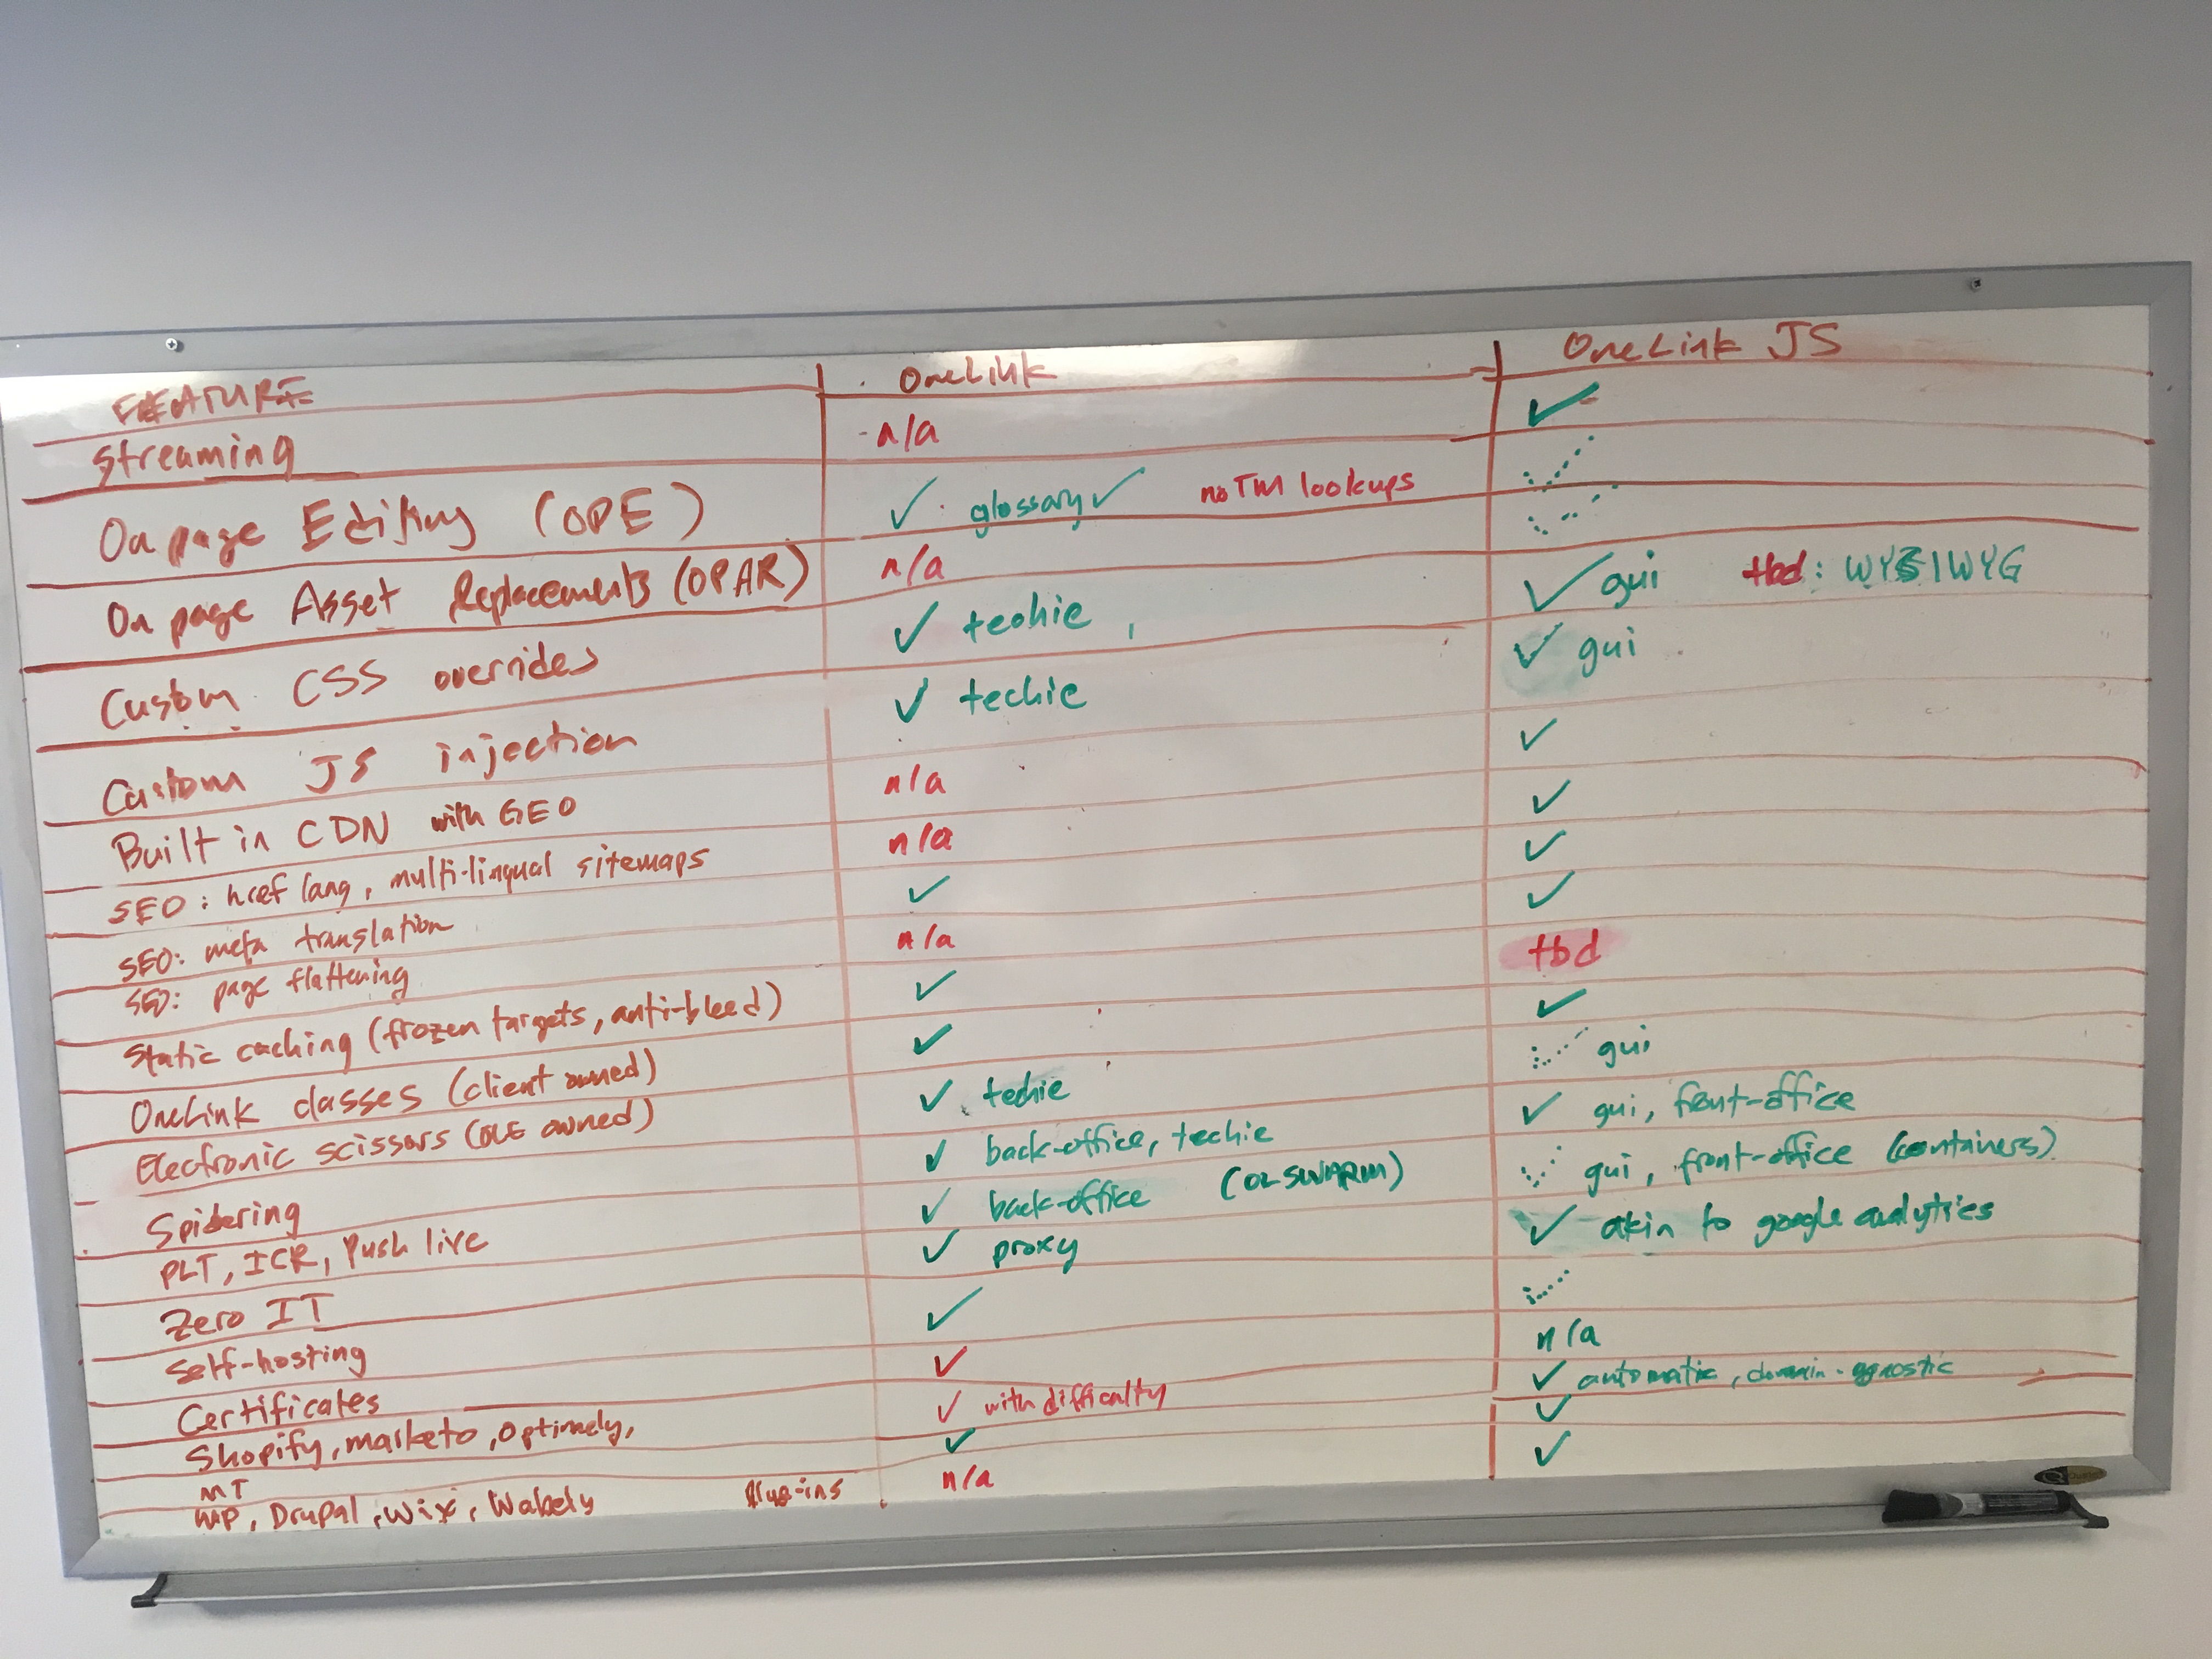 FEATURE OneLink OneLink JS
Streaming n/a ✓
On page Editing (OPE) ✓ glossary ✓ no TM lookups ✓
On page Asset Replacements (OPAR) n/a ✓
Custom CSS overrides ✓ techie, ✓ gui tbd: WYSIWYG
Custom JS injection ✓ techie ✓ gui
Built in CDN with GEO n/a ✓
SEO: href lang, multi-lingual sitemaps n/a ✓
SEO: meta translation ✓ ✓
SEO: page flattening n/a ✓
Static caching (frozen targets, anti-bleed) ✓ tbd
OneLink classes (client owned) ✓ ✓
Electronic scissors (OLE owned) ✓ techie ✓ gui
Spidering ✓ back-office, techie ✓ gui, front-office
PLT, ICR, Push live ✓ back-office (OLSWARM) ✓ gui, front-office (containers)
Zero IT ✓ proxy ✓ akin to google analytics
Self-hosting ✓ ✓
Certificates ✓ n/a
Shopify, marketo, Optimely, ✓ with difficulty ✓ automatic, domain-agnostic
MT ✓ ✓
WP, Drupal, Wix, Plug-ins n/a ✓